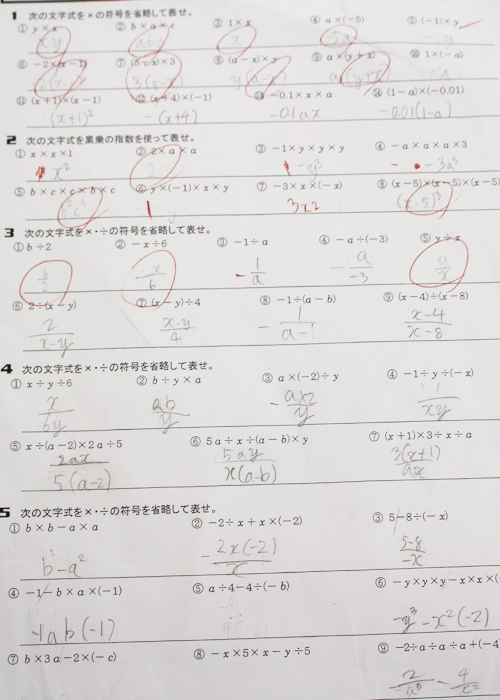 1 次の文字式を×の符号を省略して表せ。
① y×x ② b×a×c ③ 1×x ④ a×(-5) ⑤ (-1)×y
xy abc x 5a -y
⑥ -2×(x-1) ⑦ (5+x)×3 ⑧ (a-x)×y ⑨ a×(y+x) ⑩ 1×(-a)
⑪ (x+1)×(x-1) ⑫ (x+4)×(-1) ⑬ -0.1×x×a ⑭ (1-a)×(-0.01)
(x+1)² -(x+4) -0.1ax -0.01(1-a)
2 次の文字式を累乗の指数を使って表せ。
① x×x×1 ② 2×a×a ③ -1×y×y×y ④ -a×a×a×3
x² -y³ -3a³
⑤ b×c×c×b×c ⑥ y×(-1)×x×y ⑦ -3×x×(-x) ⑧ (x-5)×(x-5)×(x-5)
b²c³ 3x2 (x-5)³
3 次の文字式を×・÷の符号を省略して表せ。
① b÷2 ② -x÷6 ③ -1÷a ④ -a÷(-3) ⑤ y÷x
b/2 -x/6 -1/a -a/-3 y/x
⑥ 2÷(x-y) ⑦ (x-y)÷4 ⑧ -1÷(a-b) ⑨ (x-4)÷(x-8)
2/x-y x-y/4 x-4/x-8
4 次の文字式を×・÷の符号を省略して表せ。
① x÷y÷6 ② b÷y×a ③ a×(-2)÷y ④ -1÷y÷(-x)
x/6y ab/y -a×2/y 1/xy
⑤ x÷(a-2)×2a÷5 ⑥ 5a÷x÷(a-b)×y ⑦ (x+1)×3÷x÷a
2ax/5(a-2) 5ay/x(a-b) 3(x+1)/ax
5 次の文字式を×・÷の符号を省略して表せ。
① b×b-a×a ② -2÷x+x×(-2) ③ 5-8÷(-x)
b²-a² -2x(-2)/x 5-8/-x
④ -1-b×a×(-1) ⑤ a÷4-4÷(-b) ⑥ -y×y×y-x×x×(
-1ab(-1) -y³-x²(-2)
⑦ b×3a-2×(-c) ⑧ -x×5×x-y÷5 ⑨ -2÷a÷a÷a+(-4)
2/a³ - 4/x²